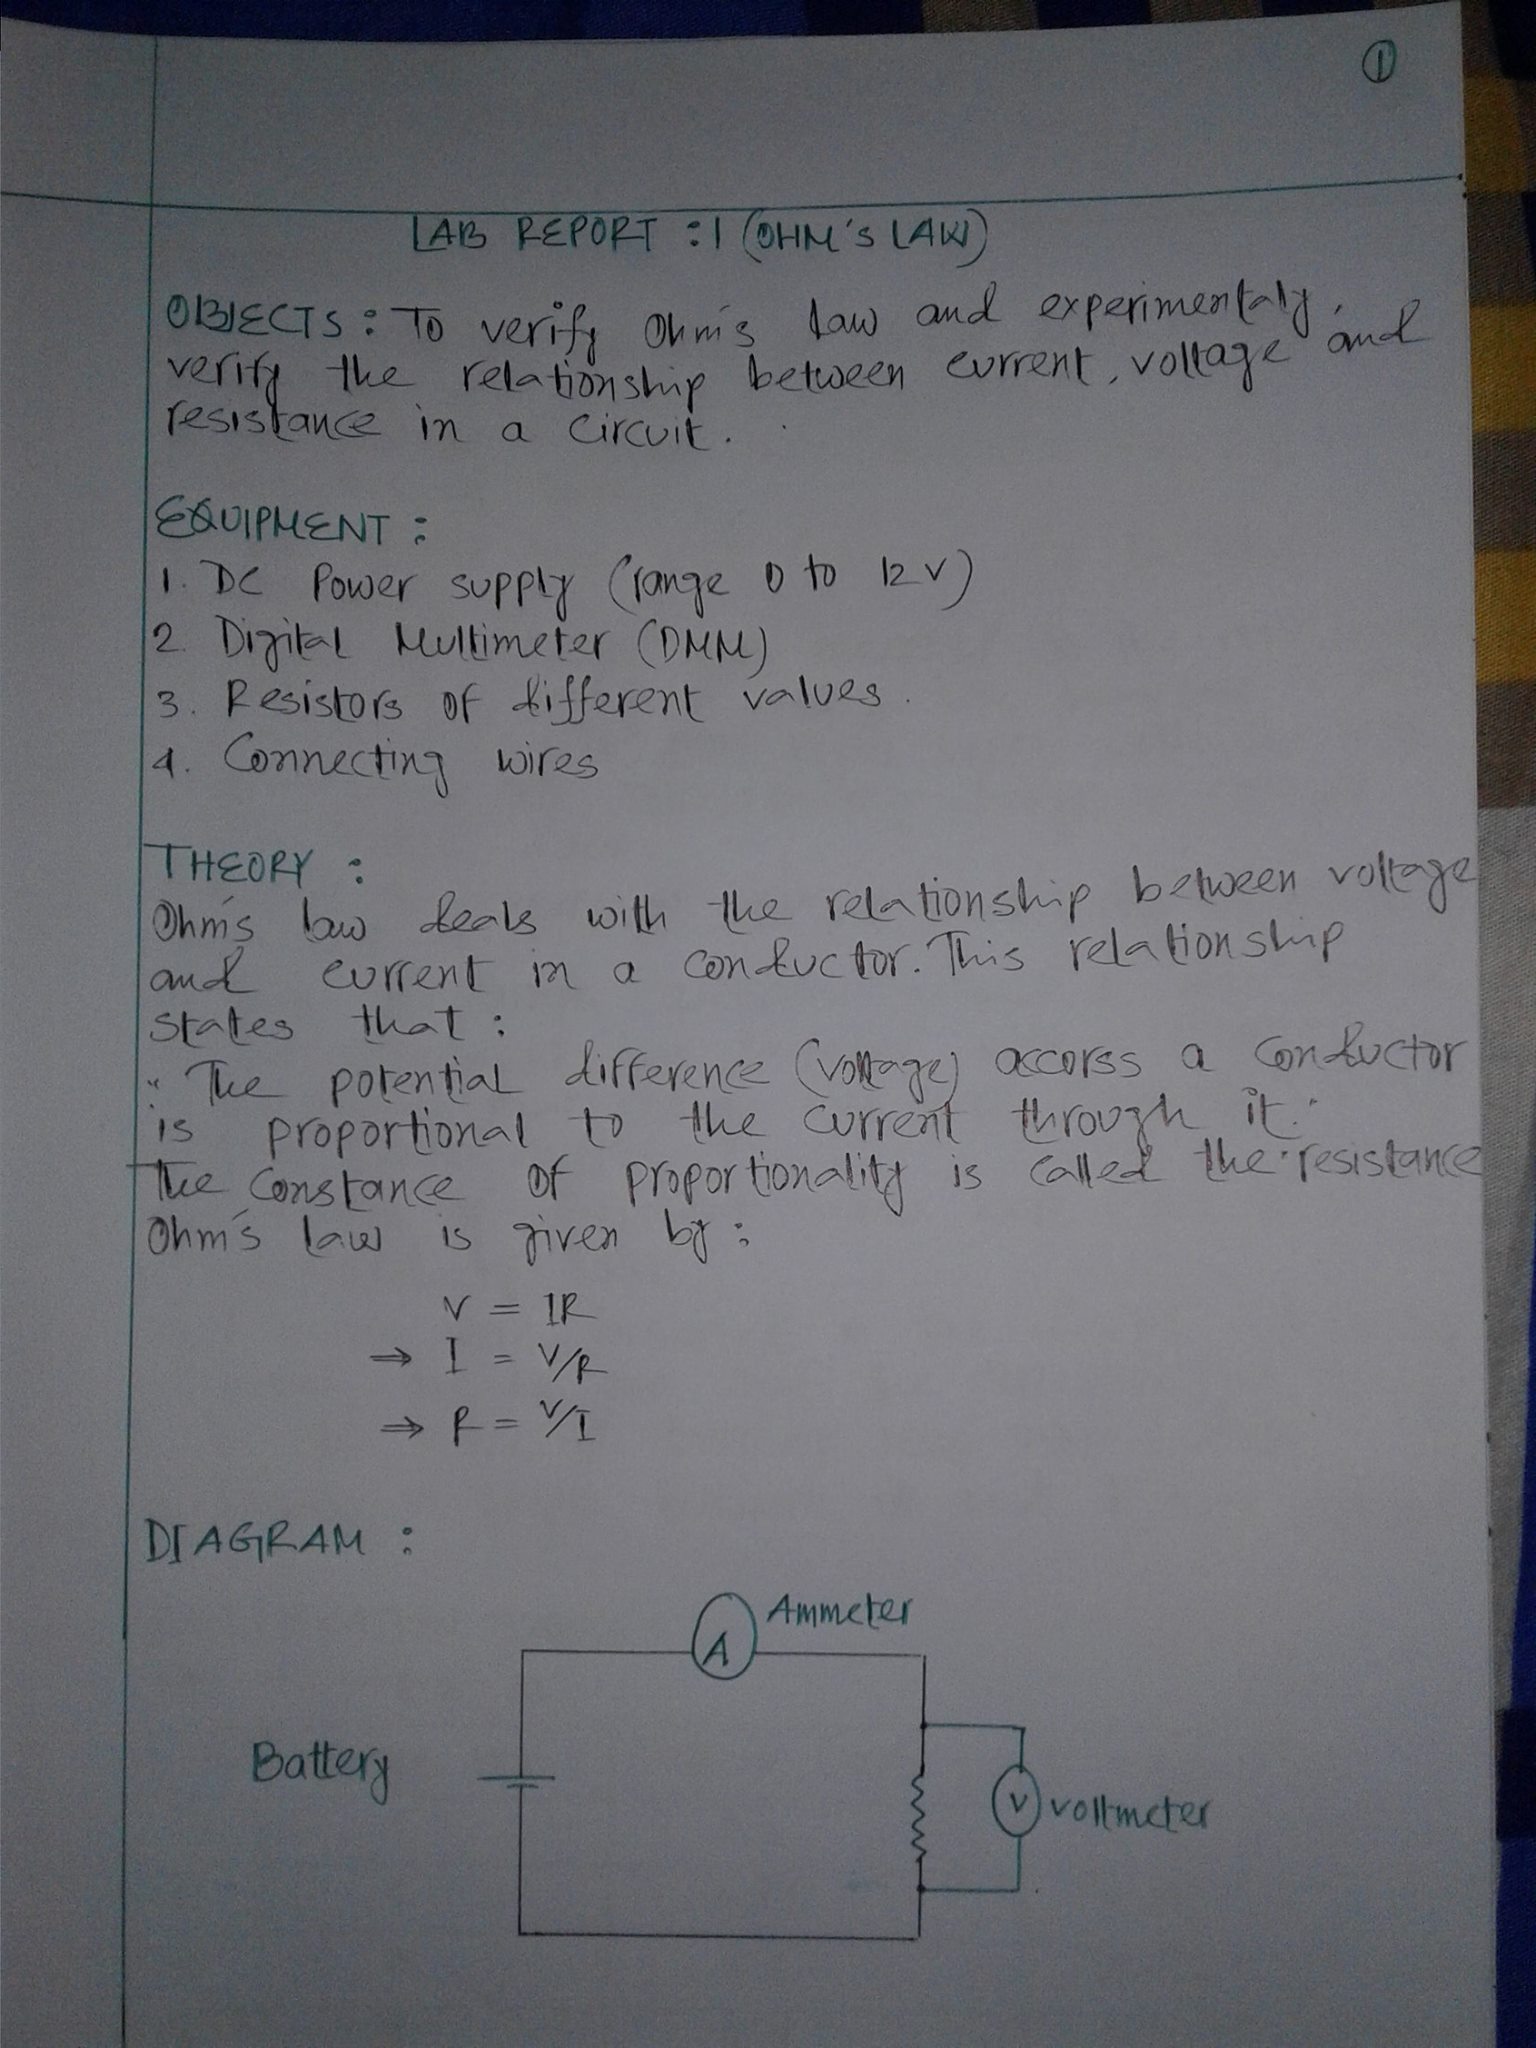 1
LAB REPORT :1 (OHM'S LAW)
OBJECTS : To verify Ohm's law and experimentaly
verify the relationship between current, voltage and
resistance in a circuit.
EQUIPMENT :
1. DC Power supply (range 0 to 12 V)
2. Digital Multimeter (DMM)
3. Resistors of different values.
4. Connecting wires
THEORY :
Ohm's law deals with the relationship between voltage
and current in a conductor. This relationship
states that :
"The potential difference (voltage) accorss a conductor
is proportional to the current through it."
The Constance of proportionality is called the resistance
Ohm's law is given by :
V = IR
⇒ I = V/R
⇒ R = V/I
DIAGRAM :
Ammeter
A
Battery
V voltmeter